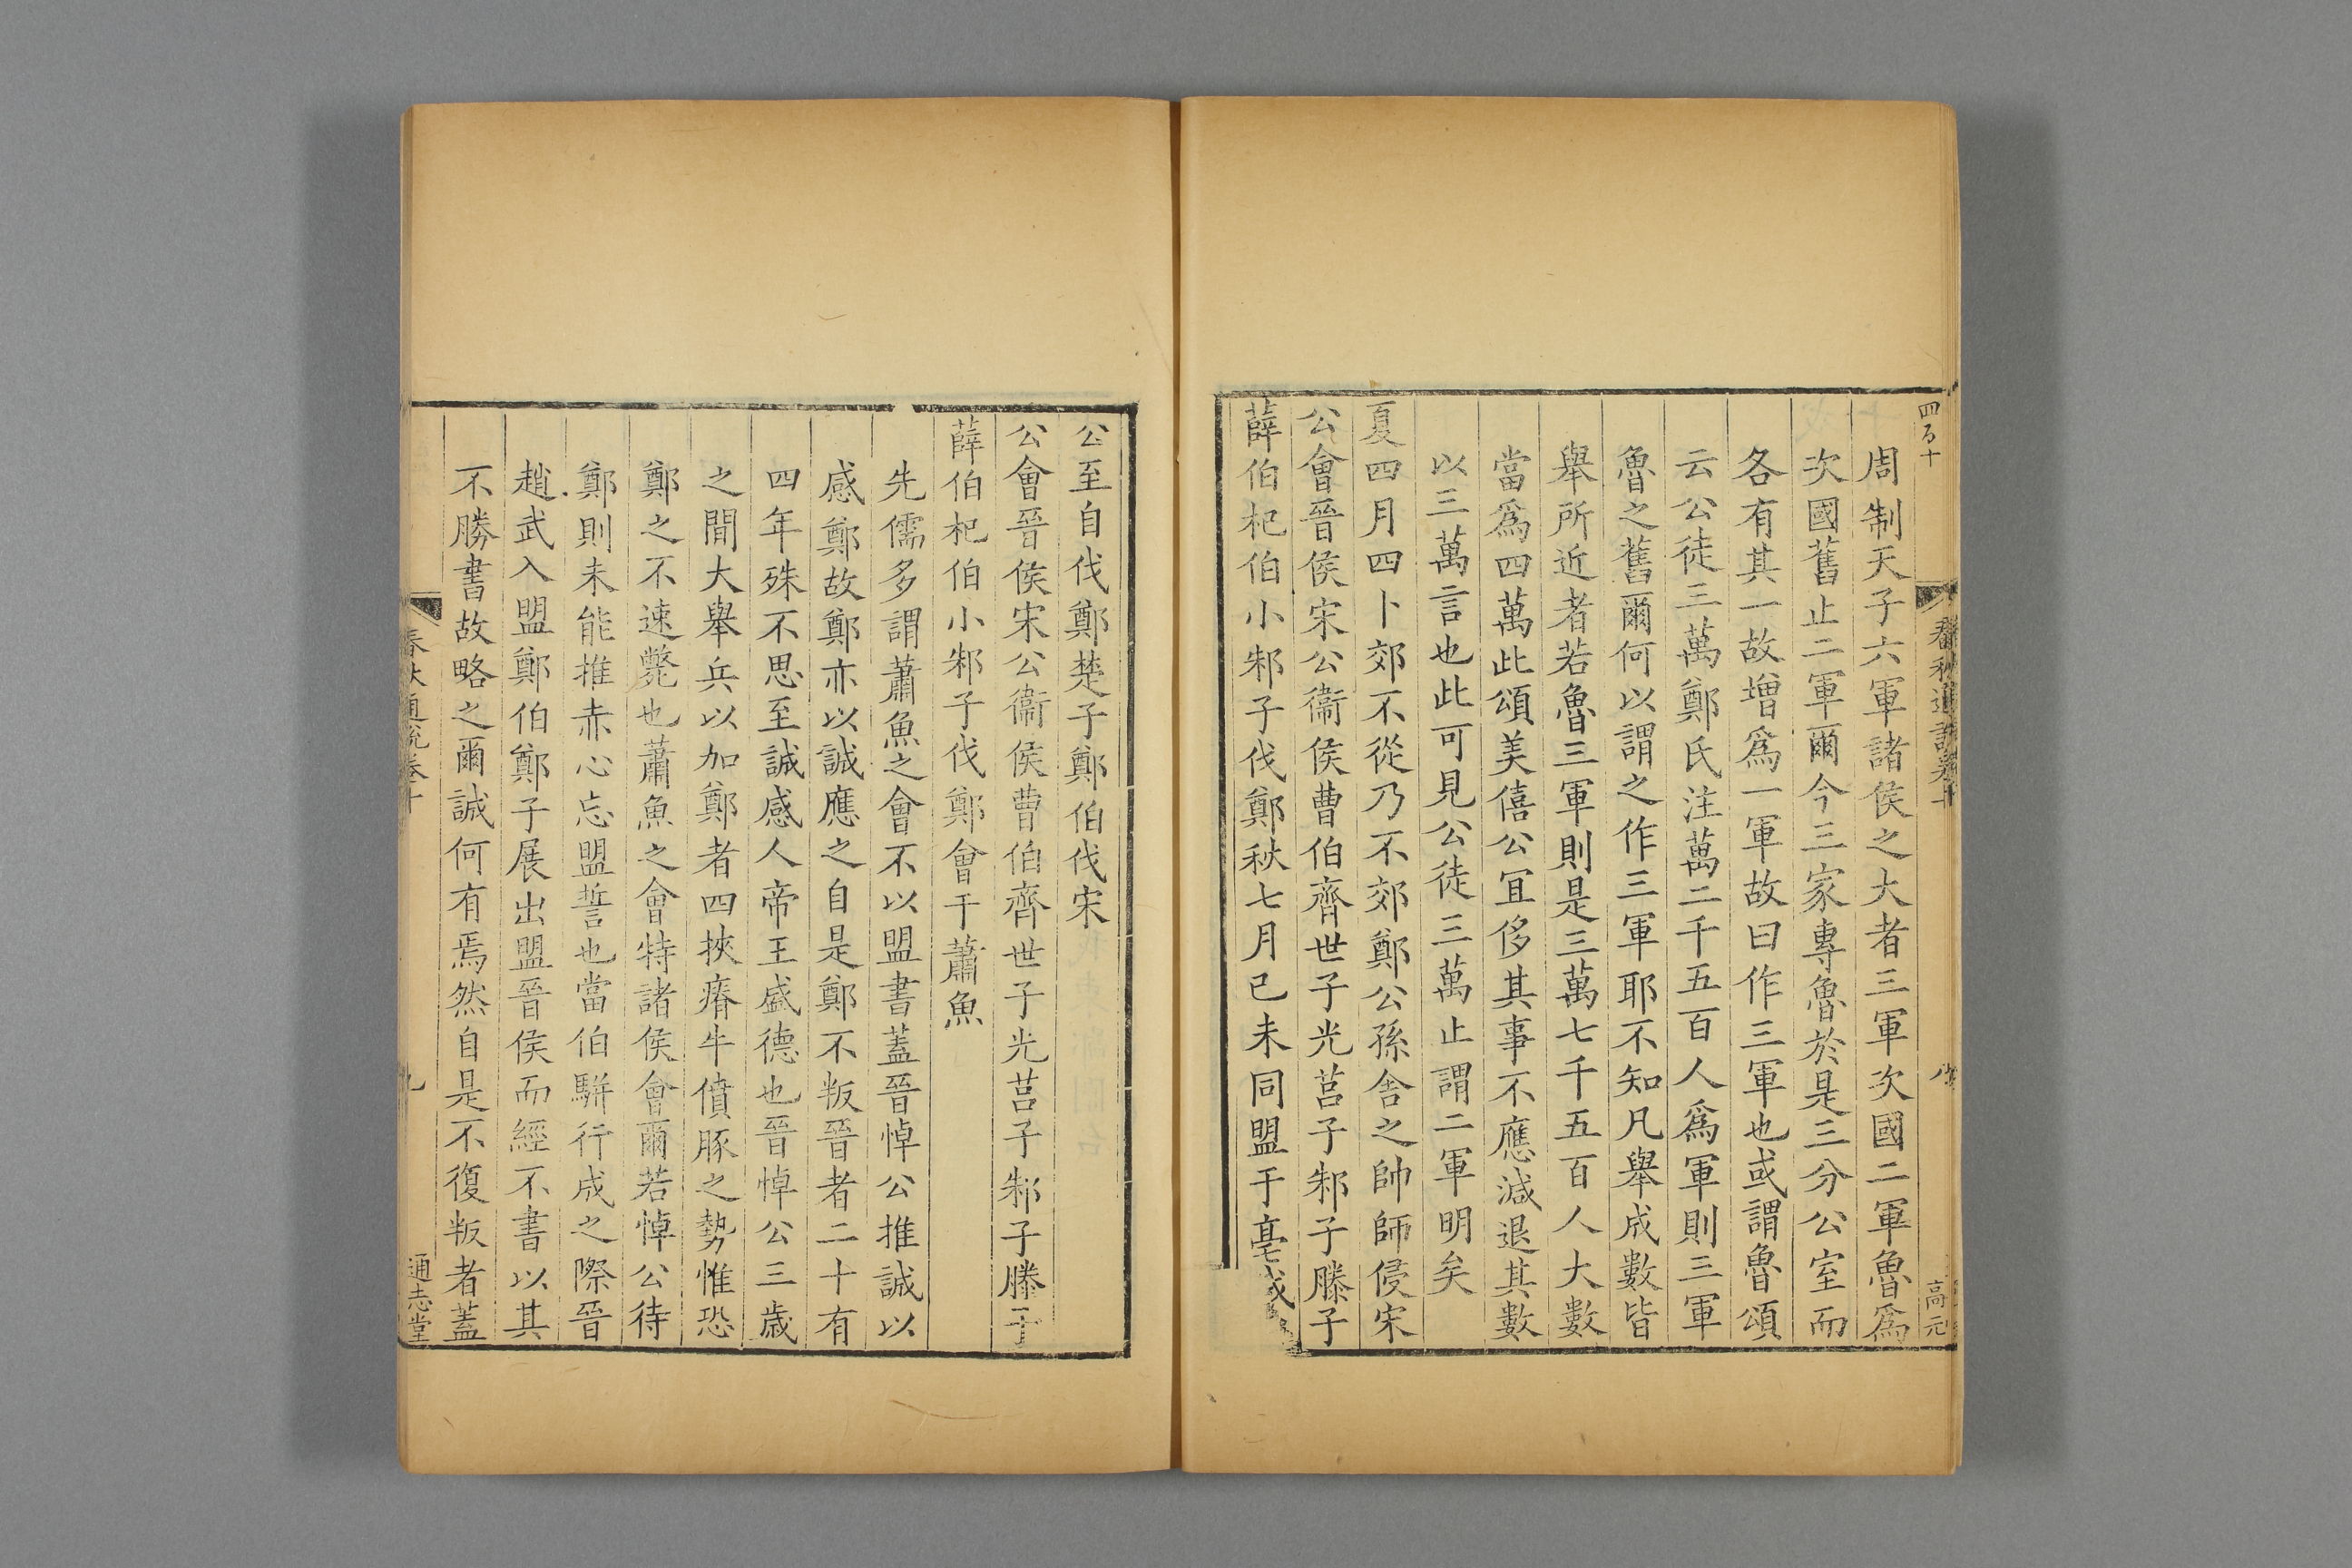 四百十
春秋通說卷十
八
高元
周制天子六軍諸侯之大者三軍次國二軍魯爲
次國舊止二軍爾今三家專魯於是三分公室而
各有其一故增爲一軍故曰作三軍也或謂魯頌
云公徒三萬鄭氏注萬二千五百人爲軍則三軍
魯之舊爾何以謂之作三軍耶不知凡舉成數皆
舉所近者若魯三軍則是三萬七千五百人大數
當爲四萬此頌美僖公宜侈其事不應減退其數
以三萬言也此可見公徒三萬止謂二軍明矣
夏四月四卜郊不從乃不郊鄭公孫舍之帥師侵宋
公會晉侯宋公衞侯曹伯齊世子光莒子邾子滕子
薛伯杞伯小邾子伐鄭秋七月己未同盟于亳城
公至自伐鄭楚子鄭伯伐宋
公會晉侯宋公衞侯曹伯齊世子光莒子邾子滕子
薛伯杞伯小邾子伐鄭會于蕭魚
先儒多謂蕭魚之會不以盟書蓋晉悼公推誠以
感鄭故鄭亦以誠應之自是鄭不叛晉者二十有
四年殊不思至誠感人帝王盛德也晉悼公三歲
之間大舉兵以加鄭者四挾瘠牛僨豚之勢惟恐
鄭之不速斃也蕭魚之會特諸侯會爾若悼公待
鄭則未能推赤心忘盟誓也當伯騈行成之際晉
趙武入盟鄭伯鄭子展出盟晉侯而經不書以其
不勝書故略之爾誠何有焉然自是不復叛者蓋
春秋通說卷十
九
通志堂